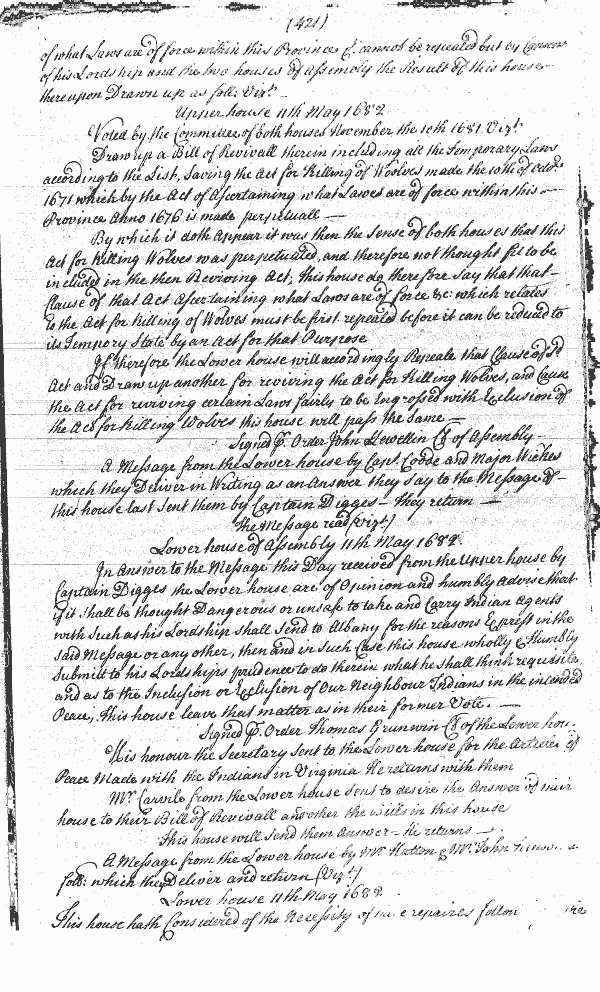 (421)
of what Laws are of force within this Province &c. cannot be repealed but by Consent
of his Lordship and the two houses of Assembly the Result of this house
thereupon Drawn up as foll: Vizt.
Upper house 11th May 1682
Voted by the Committee of both houses November the 10th 1681. Vizt.
Draw up a Bill of Revivall therein including all the Temporary Laws
according to the List, Saving the Act for Killing of Woolves made the 10th of Octo.
1671 which by the Act of Ascertaining what Lawes are of force within this
Province Anno 1676 is made perpetuall
By which it doth Appear it was then the Sense of both houses that this
Act for Killing Wolves was perpetuated, and therefore not thought fit to be
included in the then Reviving Act; this house do therefore Say that that
Clause of that Act Ascertaining what Laws are of force &c: which relates
to the Act for Killing of Wolves must be first repealed before it can be reduced to
its Tempory State by an Act for that Purpose
If therefore the Lower house will accordingly Repeale that Clause of sd
Act and Draw up another for reviving the Act for Killing Wolves, and Cause
the Act for reviving certain Laws fairly to be Engrossed with Exclusion of
the Act for Killing Wolves this house will pass the Same
Signed p. Order John Lewellin Cl of Assembly
A Message from the Lower house by Capt. Coode and Major Wickes
which they Deliver in Writing as an Answer they say to the Message
this house last Sent them by Captain Digges - they return
The Message read (vizt)
Lower house of Assembly 11th May 1682.
In Answer to the Message this Day received from the Upper house by
Captain Digges the Lower house are of Opinion and humbly Advise that
if it Shall be thought Dangerous or unsafe to take and Carry Indian Agents
with Such as his Lordship Shall Send to Albany for the reasons Exprest in the
said Message or any other, then and in Such Case this house wholly & Humbly
Submitt to his Lordships prudence to do therein what he Shall think requisite,
and as to the Inclusion or Exclusion of Our Neighbour Indians in the intended
Peace, This house leave that matter as in their former Vote.
Signed p. Order Thomas Grunwin Cl of the Lower hou.
His honour the Secretary Sent to the Lower house for the Articles of
Peace Made with the Indians in Virginia He returns with them
Mr. Carvile from the Lower house Sent to desire the Answer of
house to their Bill of Revivall and other the Bills in this house
This house will Send them Answer - He returns
A Message from the Lower house by Mr. Hatton & Mr. John
foll: which they Deliver and return (Vizt)
Lower house 11th May 1682.
This house hath Considered of the Necessity of repaires